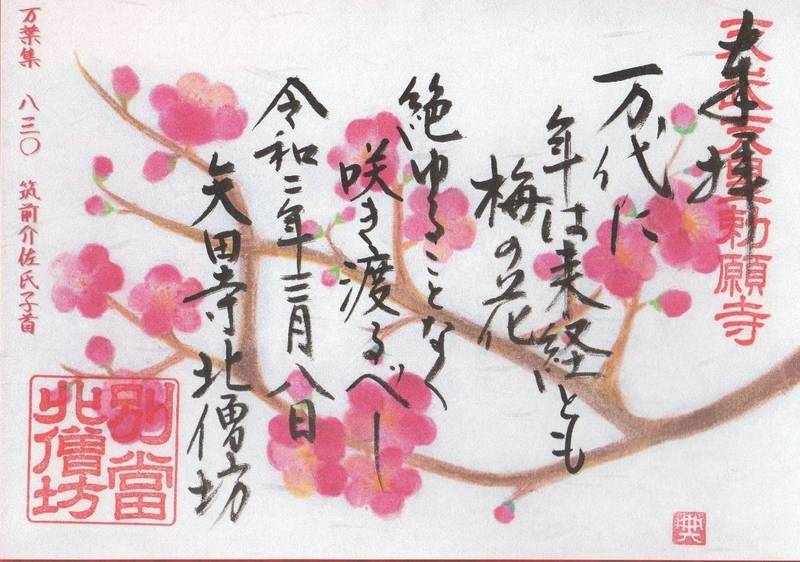 奉拝
天武天皇勅願寺
万代に
年は来経とも
梅の花
絶ゆることなく
咲き渡るべし
令和二年三月八日
矢田寺北僧坊
万葉集 八三〇 筑前介佐氏子首
別當
北僧坊